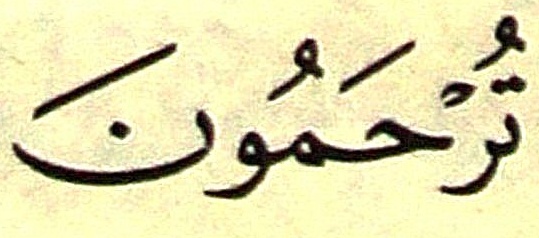 تُرْحَمُونَ